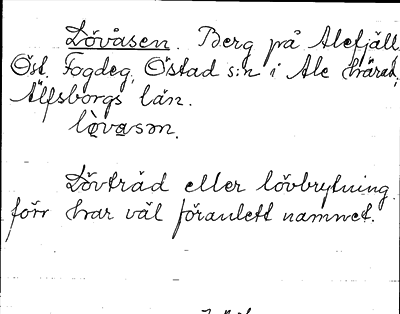 Lövåsen. Berg på Alefjäll.
Öst. Fogdeg, Östad s:n i Ale härad,
Älfsborgs län.
lövasən.
Lövträd eller lövbrytning
förr har väl föranlett namnet.